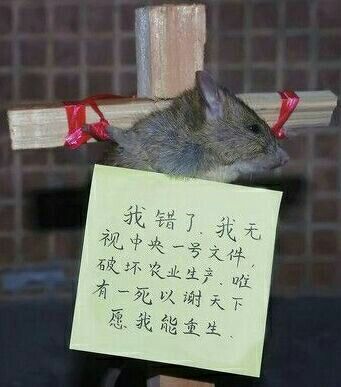 我错了.我无
视中央一号文件,
破坏农业生产.唯
有一死以谢天下
愿我能重生.